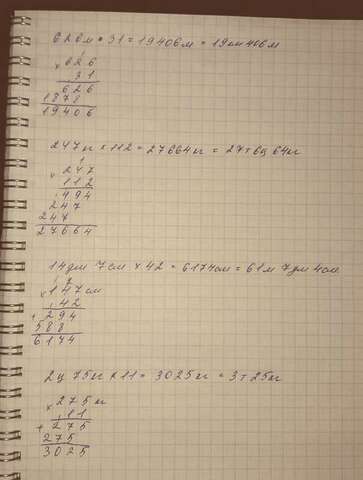 626м × 31 = 19406м = 19км 406м
× 626
31
626
1878
19406
247кг × 112 = 27664кг = 27т 6ц 64кг
1
× 247
112
494
247
247
27664
14дм 7см × 42 = 6174см = 61м 7дм 4см
1 2
× 147см
42
+ 294
588
6174
2ц 75кг × 11 = 3025кг = 3т 25кг
× 275кг
11
+ 275
275
3025